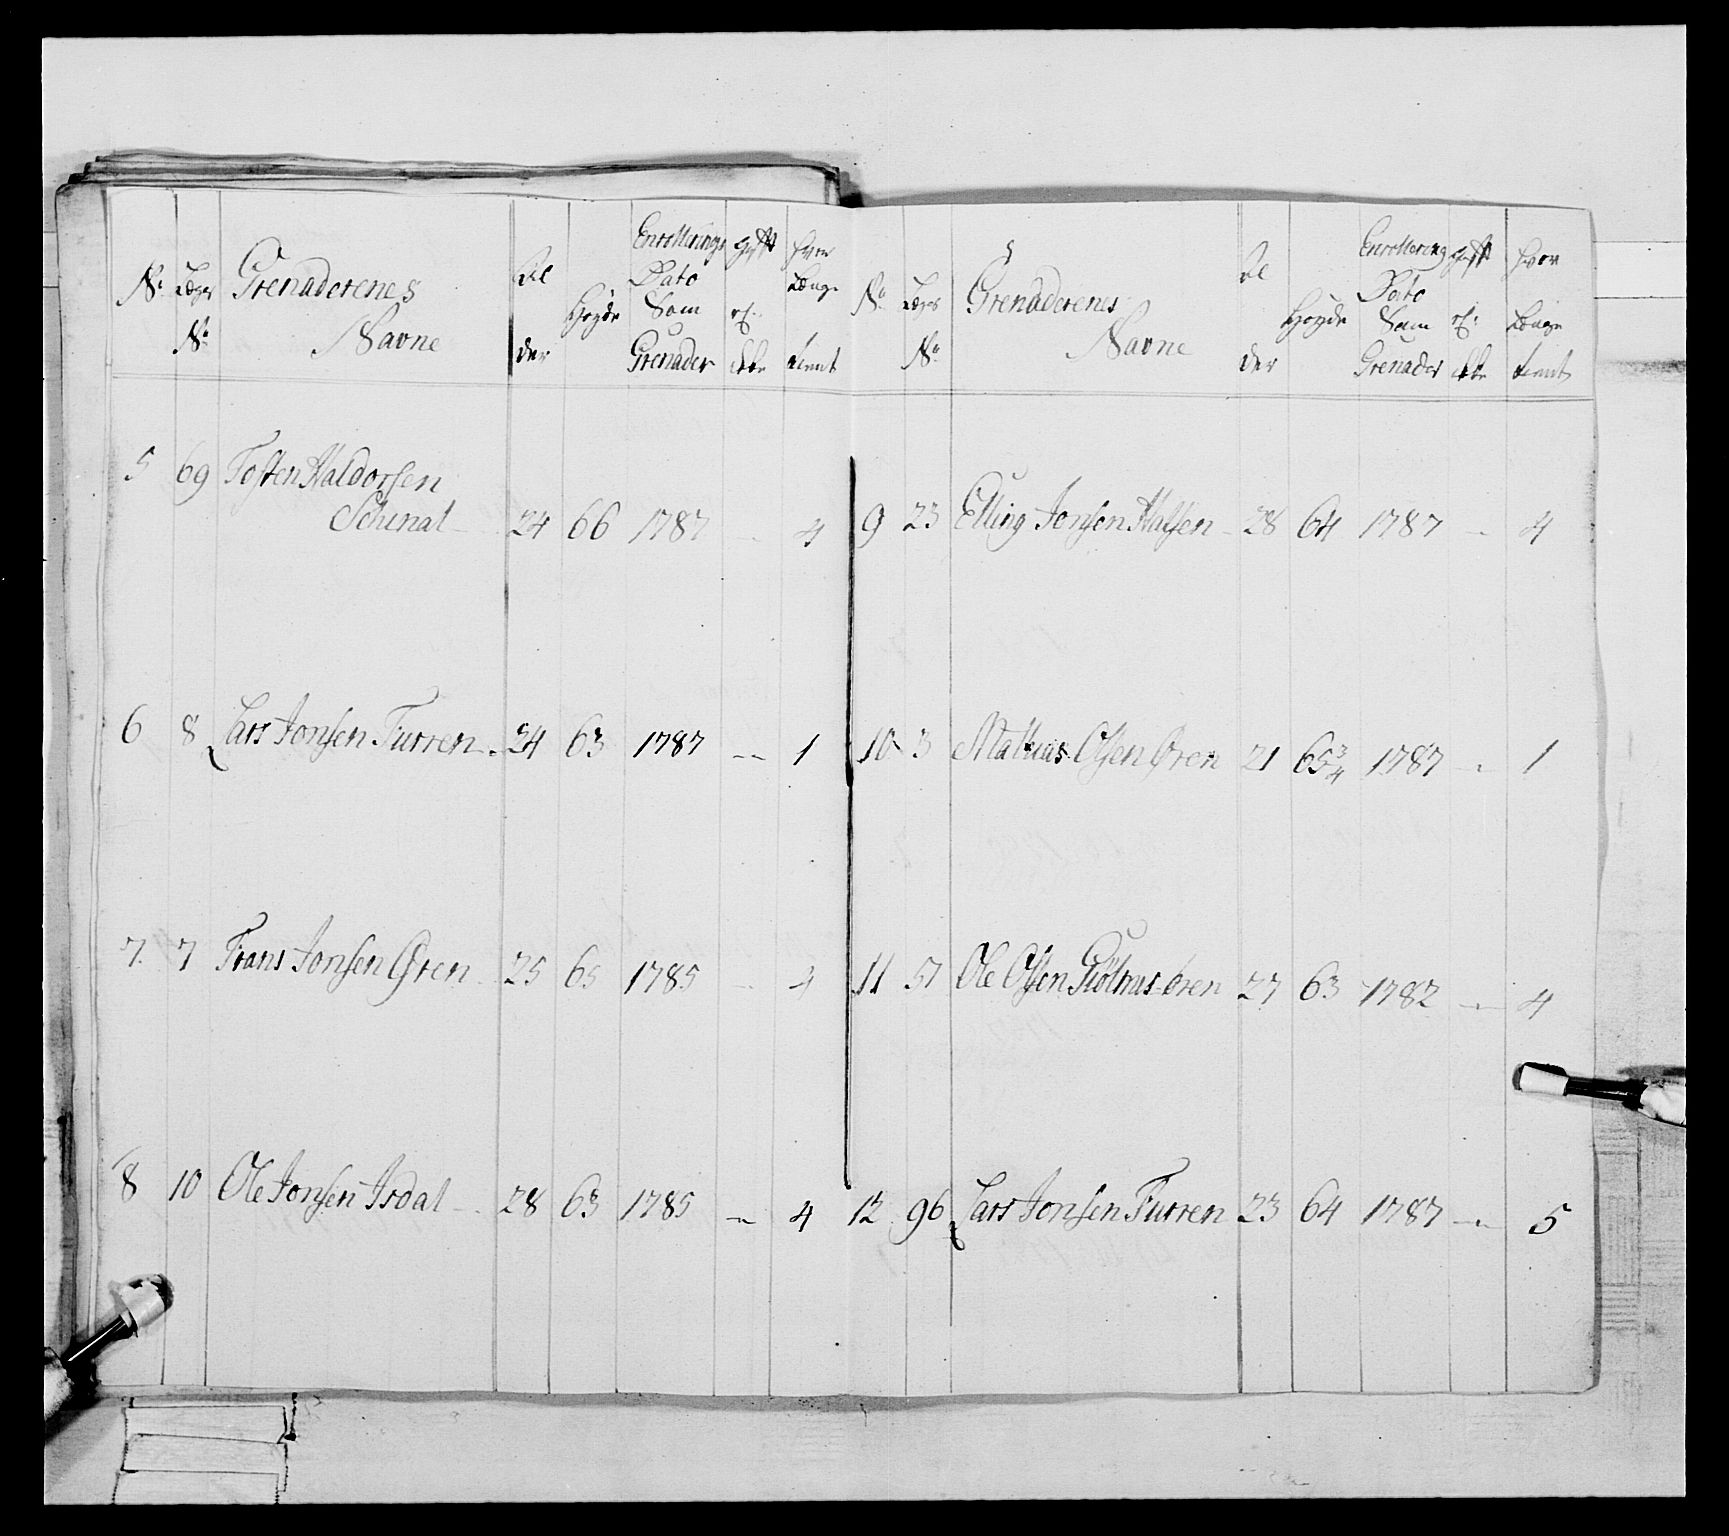 N.º Lægs N.º Grenaderenes Navne Al der Høyde Enrollerings Dato Som Grenader gift el: ikke hvor Længe tient
5 69 Tosten Haldorsen
Schinal 24 66 1787 — 4
6 8 Lars Jonsen Furren 24 63 1787 — 1
7. 7 Frans Jonsen Øren 25 65 1785 — 4
8 10 Ole Jonsen Isdal 28 63 1785 — 4
N.º Lægs N.º Grenaderenes Navne Al der Høyde Enrollering Dato Som Grenader gift el: ikke hvor Længe tient
9 23 Elling Jonsen Halsen 28 64 1787 — 4
10 3 Mathias Olsen Øren 21 65 3/4 1787 — 1
11 51 Ole Olsen øren 27 63 1782 — 4
12 96 Lars Jonsen Furren 23 64 1787 — 5